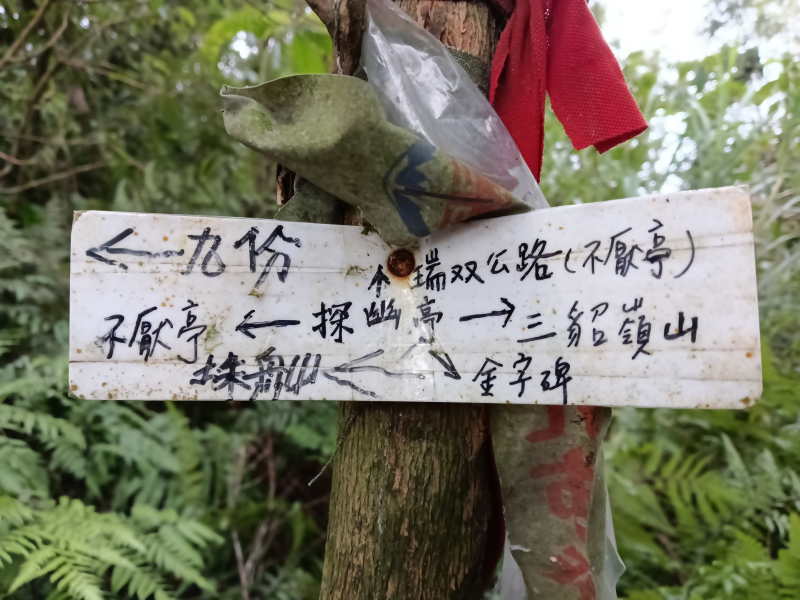 ← 九份 ↑ 瑞双公路(不厭亭)
不厭亭 ← 探幽亭 → 三貂嶺山
金字碑